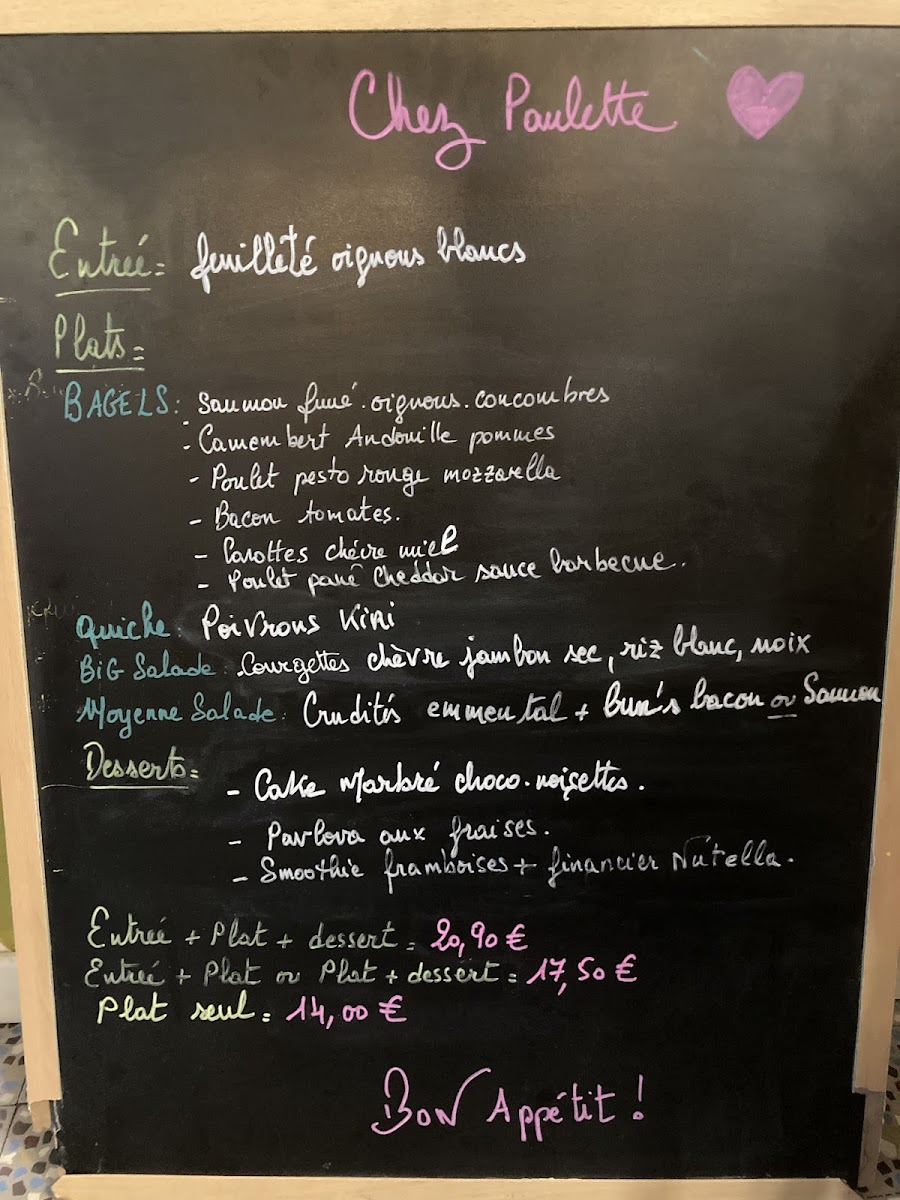 Chez Paulette
Entrée = feuilleté oignons blancs
Plats =
BAGELS : Saumon fumé. oignons. concombres
- Camembert Andouille pommes
- Poulet pesto rouge mozzarella
- Bacon tomates.
- Carottes chèvre miel
- Poulet pané Cheddar sauce barbecue.
Quiche : Poivrons KiRi
BiG Salade : Courgettes chèvre jambon sec, riz blanc, noix
Moyenne Salade : Crudités emmental + bun's bacon ou Saumon
Desserts =
- Cake Marbré choco. noisettes.
- Pavlova aux fraises.
- Smoothie framboises + financier Nutella.
Entrée + Plat + dessert = 20,90 €
Entrée + Plat ou Plat + dessert = 17,50 €
Plat seul = 14,00 €
BON Appétit !